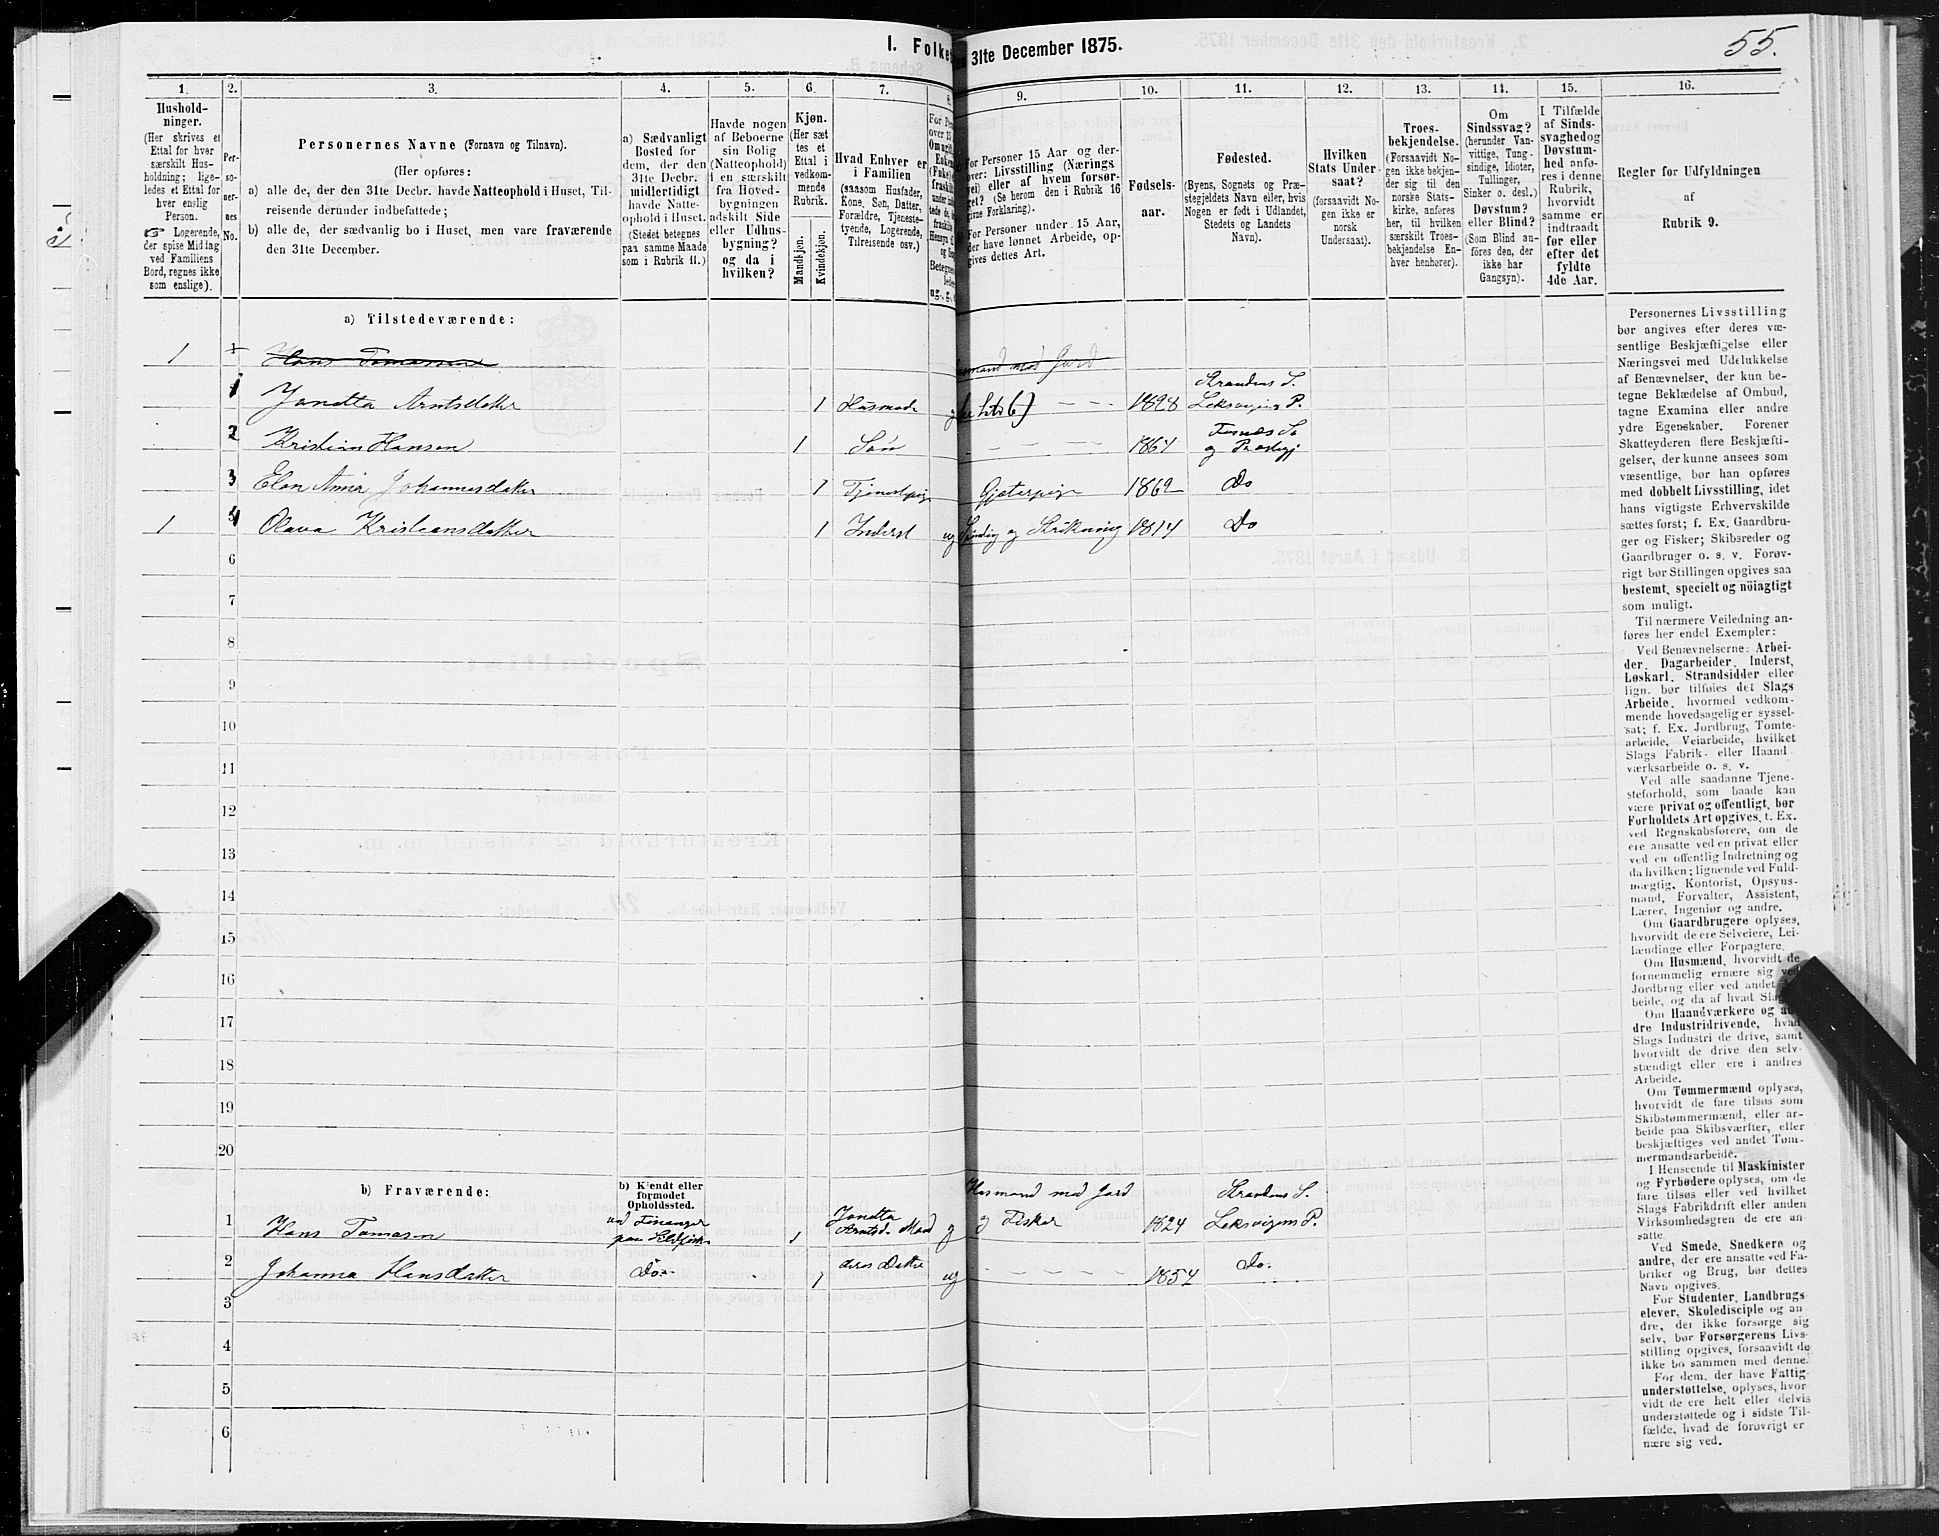 55.
I. Folke 31te December 1875.
1. 2. 3. 4. 5. 6. 7. 8. 9. 10. 11. 12. 13. 14. 15. 16.
Hushold-
ninger.
(Her skrives et
Ettal for hver
særskilt Hus-
holdning; lige-
ledes et Ettal for
hver enslig
Person.
☞ Logerende,
der spise Middag
ved Familiens
Bord, regnes ikke
som enslige).
Per-
so-
ner-
nes
No.
Personernes Navne (Fornavn og Tilnavn).
(Her opføres:
a) alle de, der den 31te Decbr. havde Natteophold i Huset, Til-
reisende derunder indbefattede;
b) alle de, der sædvanlig bo i Huset, men vare fraværende
den 31te December.
a) Sædvanligt
Bosted for
dem, der den
31te Decbr.
midlertidigt
havde Natte-
ophold i Huset.
(Stedet betegnes
paa samme Maade
som i Rubrik 11.)
Havde nogen
af Beboerne
sin Bolig
(Natteophold)
i en særskilt
fra Hoved-
bygningen
adskilt Side
eller Udhus-
bygning?
og da i
hvilken?
Kjøn.
(Her sæt
tes et
Ettal i
vedkom-
mende
Rubrik.
Mandkjøn.
Kvindekjøn.
Hvad Enhver er
i Familien
(saasom Husfader,
Kone, Søn, Datter,
Forældre, Tjeneste-
tyende, Logerende,
Tilreisende osv.)
For Personer 15 Aar og der-
over: Livsstilling (Nærings
vei) eller af hvem forsør-
get? (Se herom den i Rubrik 16
givne Forklaring).
For Personer under 15 Aar,
der have lønnet Arbeide, op-
gives dettes Art.
Fødsels-
aar.
Fødested.
(Byens, Sognets og Præ-
stegjeldets Navn eller, hvis
Nogen er født i Udlandet,
Stedets og Landets
Navn).
Hvilken
Stats Under-
saat?
(forsaavidt No-
gen ikke er
norsk
Undersaat).
Troes-
bekjendelse.
(Forsaavidt No-
gen ikke bekjen-
der sig til den
norske Stats-
kirke, anføres
her, til hvilken
særskilt Troes-
bekjendelse En-
hver henhører).
Om
Sindssvag?
(herunder Van-
vittige, Tung-
sindige, Idioter,
Tullinger,
Sinker o. desl.)
Døvstum?
eller Blind?
(Som Blind an-
føres den, der
ikke har
Gangsyn).
I Tilfælde
af Sinds-
svaghed og
Døvstum-
hed anfø-
res i denne
Rubrik,
hvorvidt
samme er
indtraadt
før eller
efter det
fyldte
4de Aar.
Regler for Udfyldningen
af
Rubrik 9.
a) Tilstedeværende:
1 1 Hans Tomasen Husmand med Jord
1 Janetta Arntsdatter 1 Husmoder 1828 Strandens S. Leksvigens P.
2 Kristian Hansen 1 Søn 1864 Fosnæs S. og Præstegj
3 Elen Anna Johannesdatter 1 Gjæterpige 1862 Do
1 4 Olava Kristiansdatter 1 Inderst ug Spinding og Strikning 1814 Do
6
7
8
9
10
11
12
13
14
15
16
17
18
19
20
b) Fraværende:
b) Kjendt eller
formodet
Opholdssted.
1 Hans Tomasen 1 Janetta Arntsd. Mand g Husmand med Jord og Fisker 1824 Strandens S. Leksvigens P.
2 Johanna Hansdatter Do 1 deres Datter ug 1854 Do.
3
4
5
6
Personernes Livsstilling
bør angives efter deres væ-
sentlige Beskjæftigelse eller
Næringsvei med Udelukkelse
af Benævnelser, der kun be-
tegne Beklædelse af Ombud,
tagne Examina eller andre
ydre Egenskaber. Forener
Skatteyderen flere Beskjæfti-
gelser, der kunne ansees som
væsentlige, bør han opføres
med dobbelt Livsstilling, idet
hans vigtigste Erhvervskilde
sættes først; f. Ex. Gaardbru-
ger og Fisker; Skibsreder og
Gaardbruger o. s. v. Forøv-
rigt bør Stillingen opgives saa
bestemt, specielt og nöiagtigt
som muligt.
Til nærmere Veiledning an-
føres her endel Exempler:
Ved Benævnelserne: Arbei-
der, Dagarbeider, Inderst,
Løskarl, Strandsidder eller
lign. bør tilføies det Slags
Arbeide, hvormed vedkom-
mende hovedsagelig er syssel-
sat; f. Ex. Jordbrug, Tomte-
arbeide, Veiarbeide, hvilket
Slags Fabrik- eller Haand
værksarbeide o. s. v.
Ved alle saadanne Tjene-
steforhold, som baade kan
være privat og offentligt, bør
Forholdets Art opgives, t. Ex.
ved Regnskabsførere, om de
ere ansatte ved en privat eller
ved en offentlig Indretning og
da hvilken; lignende ved Fuld-
mægtig, Kontorist, Opsyns-
mand, Forvalter, Assistent,
Lærer, Ingeniør og andre.
Om Gaardbrugere oplyses,
hvorvidt de ere Selveiere, Lei-
lændinge eller Forpagtere.
Om Husmænd, hvorvidt de
fornemmelig ernære sig ved
Jordbrug eller ved andet Ar-
beide, og da af hvad Slags.
Om Haandværkere og an-
dre Industridrivende, hvad
Slags Industri de drive, samt
hvorvidt de drive den selv-
stændigt eller ere i andres
Arbeide.
Om Tømmermænd oplyses,
hvorvidt de fare tilsøs som
Skibstømmermænd, eller ar-
beide paa Skibsværfter, eller
beskjæftiges ved andet Tøm-
mermandsarbeide.
I Henseende til Maskinister
og Fyrbødere oplyses, om de
fare tilsøs eller ved hvilket
Slags Fabrikdrift eller anden
Virksomhedsgren de ere an-
satte.
Ved Smede, Snedkere og
andre, der ere ansatte ved Fa-
briker og Brug, bør dettes
Navn opgives.
For Studenter, Landbrugs
elever, Skoledisciple og an
dre, der ikke forsørge sig
selv, bør Forsørgerens Livs-
stilling opgives, forsaavidt de
ikke bo sammen med denne.
For dem, der have Fattig-
understøttelse, oplyses, hvor-
vidt de ere helt eller delvis
understøttede og i sidste Til-
fælde, hvad de forøvrigt er
nære sig ved.